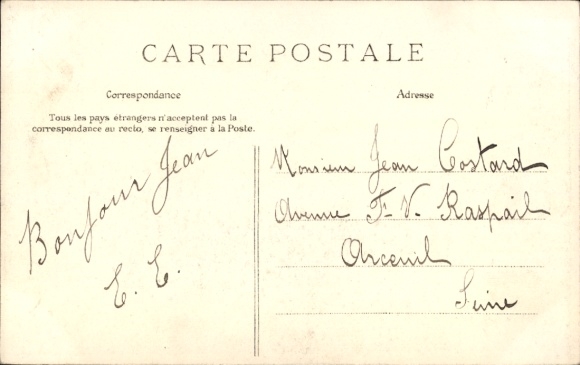 CARTE POSTALE
Correspondance
Adresse
Tous les pays étrangers n'acceptent pas la
correspondance au recto, se renseigner à la Poste.
Bonjour Jean
E. E.
Monsieur Jean Costard
Avenue F-V. Raspail
Arceuil
Seine